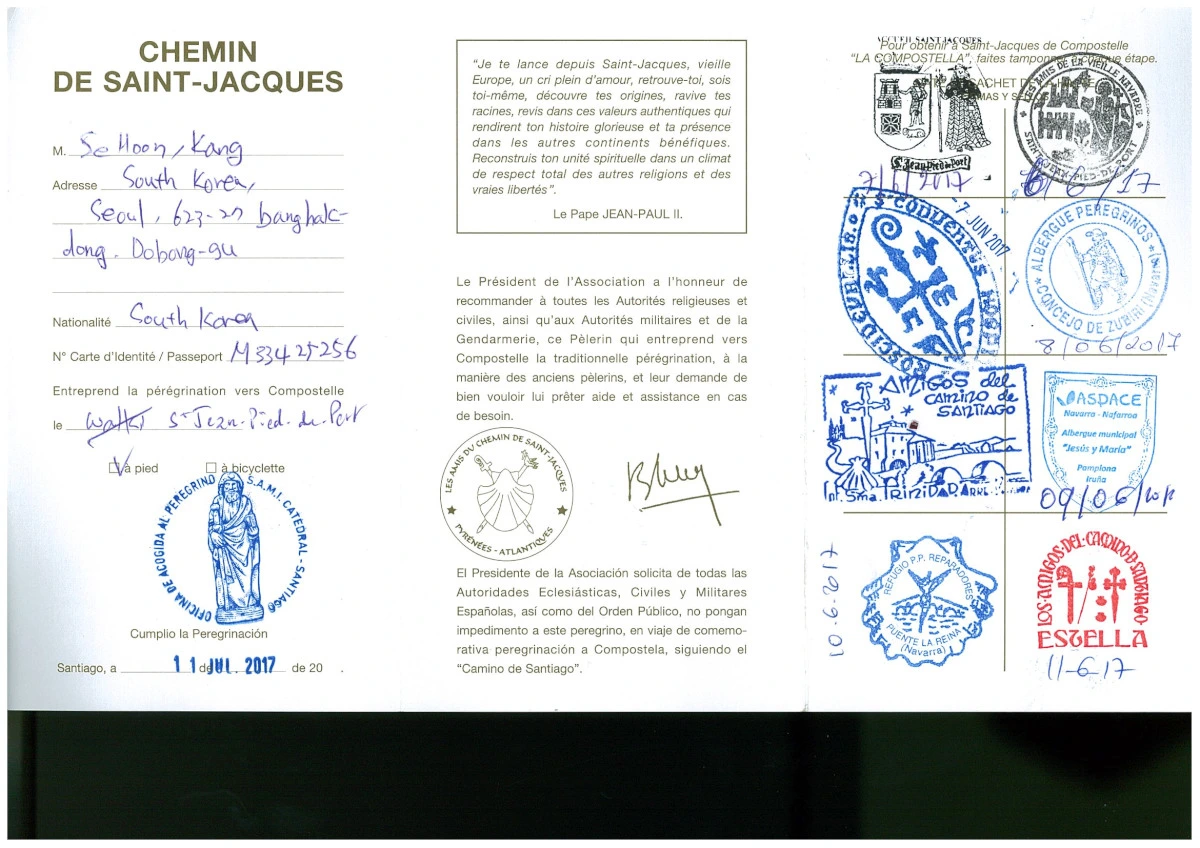 CHEMIN
DE SAINT-JACQUES
M. SeHoon, Kang
Adresse South Korea,
Seoul, 623-27 banghak-
dong. Dobong-gu
Nationalité South Korea
N° Carte d'Identité / Passeport M33425256
Entreprend la pérégrination vers Compostelle
le St Jean-Pied-de-Port
à pied à bicyclette
OFICINA DE ACOGIDA AL PEREGRINO S.A.M.I. CATEDRAL - SANTIAGO
Cumplio la Peregrinación
Santiago, a 11 de JUL. 2017 de 20 .
"Je te lance depuis Saint-Jacques, vieille
Europe, un cri plein d'amour, retrouve-toi, sois
toi-même, découvre tes origines, ravive tes
racines, revis dans ces valeurs authentiques qui
rendirent ton histoire glorieuse et ta présence
dans les autres continents bénéfiques.
Reconstruis ton unité spirituelle dans un climat
de respect total des autres religions et des
vraies libertés".
Le Pape JEAN-PAUL II.
Le Président de l'Association a l'honneur de
recommander à toutes les Autorités religieuses et
civiles, ainsi qu'aux Autorités militaires et de la
Gendarmerie, ce Pèlerin qui entreprend vers
Compostelle la traditionnelle pérégrination, à la
manière des anciens pèlerins, et leur demande de
bien vouloir lui prêter aide et assistance en cas
de besoin.
LES AMIS DU CHEMIN DE SAINT-JACQUES
PYRÉNÉES - ATLANTIQUES
El Presidente de la Asociación solicita de todas las
Autoridades Eclesiásticas, Civiles y Militares
Españolas, así como del Orden Público, no pongan
impedimento a este peregrino, en viaje de comemo-
rativa peregrinación a Compostela, siguiendo el
"Camino de Santiago".
ACCUEIL SAINT-JACQUES
Pour obtenir à Saint-Jacques de Compostelle
"LA COMPOSTELLA", faites tamponner à chaque étape.
CACHET DE LA HALTE
S. Jean Pied de Port
7/6/2017
AMIS DE LA VIEILLE NAVARRE
SAINT-JEAN-PIED-DE-PORT
6/6/17
-7 JUN 2017
CONVENTUS
ALBERGUE PEREGRINOS
CONCEJO DE ZUBIRI (Navarra)
8/06/2017
AMIGOS del
CAMINO DE
SANTIAGO
TRINIDAD
ASPACE
Navarra - Nafarroa
Albergue municipal
"Jesús y María"
Pamplona
Iruña
09/06/2017
10-6-2017
REFUGIO P.P. REPARADORES
PUENTE LA REINA
(Navarra)
LOS AMIGOS DEL CAMINO D SANTIAGO
ESTELLA
11-6-17